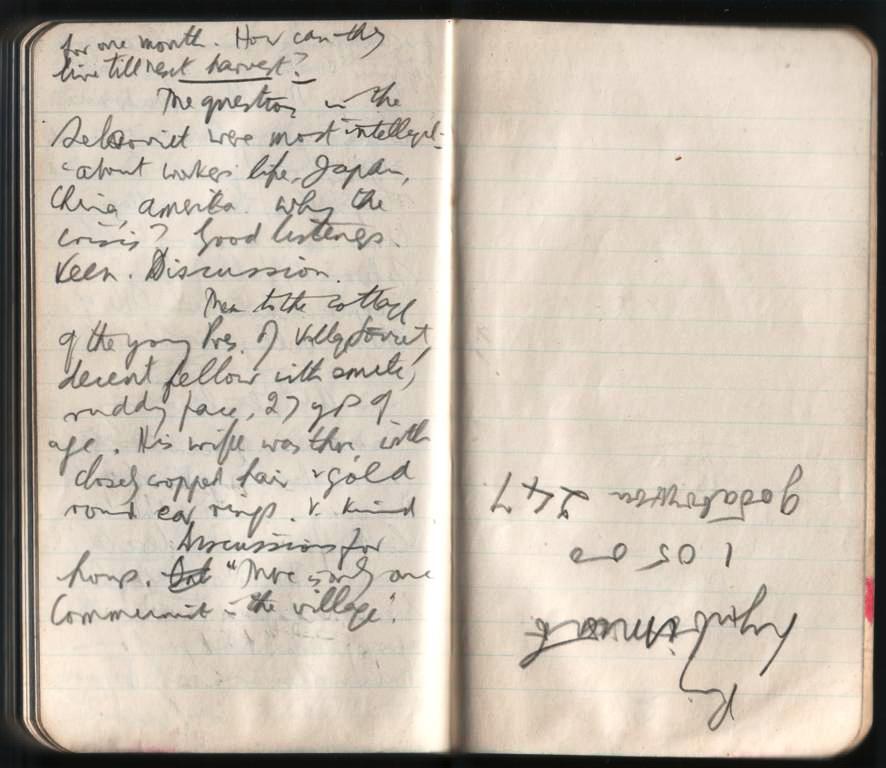 for one month. How can they
live till next harvest?
The questions in the
Selsoviet were most intelligent
about workers' life, Japan,
China, America. Why the
crisis? Good listeners.
Keen. Discussion.
Then to the cottage
of the young Pres. of Village Soviet,
decent fellow with smile,
ruddy face, 27 yrs of
age. His wife was there, with
closely cropped hair & gold
round ear rings. V. kind
Discussions for
hours. "There is only one
Communist in the village".
1 05 00
247